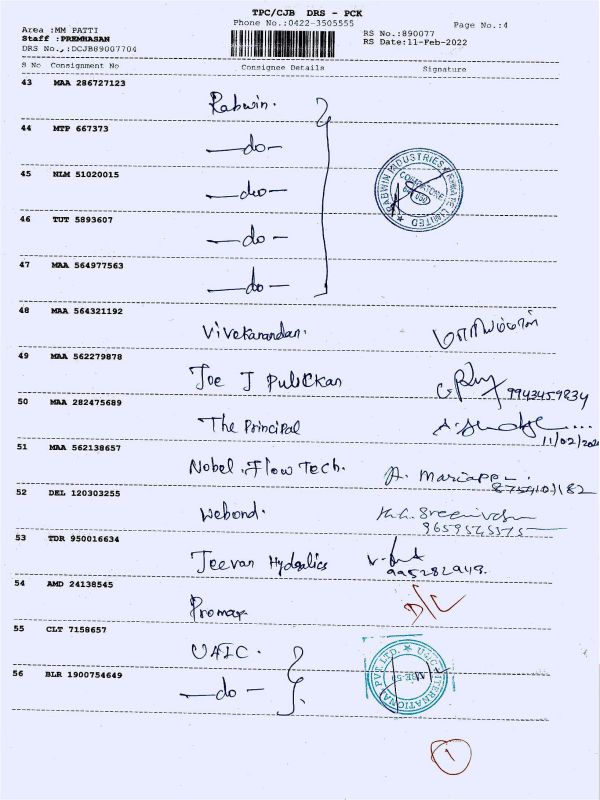 TPC/CJB DRS - PCK
Phone No.:0422-3505555
Page No.:4
Area :MM PATTI
Staff :PREMHASAN
DRS No.,:DCJB89007704
RS No:890077
RS Date:11-Feb-2022
S No Consignment No Consignee Details Signature
43 MAA 286727123
Rabwin.
44 MTP 667373
—do—
45 NLM 51020015
—do—
46 TUT 5893607
—do—
47 MAA 564977563
—do—
48 MAA 564321192
Vivekanandan.
49 MAA 562279878
Joe J Pulickan
9943459834
50 MAA 282475689
The Principal
11/02/202
51 MAA 562138657
Nobel. Flow Tech.
A. Mariappn
8754107182
52 DEL 120303255
Webond.
53 TDR 950016634
Jeevan Hydraulics
54 AMD 24138545
Promax
D/L
55 CLT 7158657
UAIC.
56 BLR 1900754649
—do—
RABWIN INDUSTRIES PRIVATE LIMITED
COIMBATORE
1